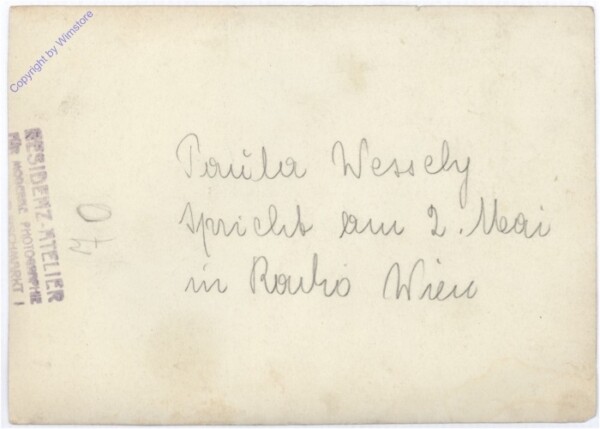 Copyright by Winstore
Paula Wessely
spricht am 2. Mai
in Radio Wien
RESIDENZ-ATELIER
FÜR MODERNE PHOTOGRAPHIE